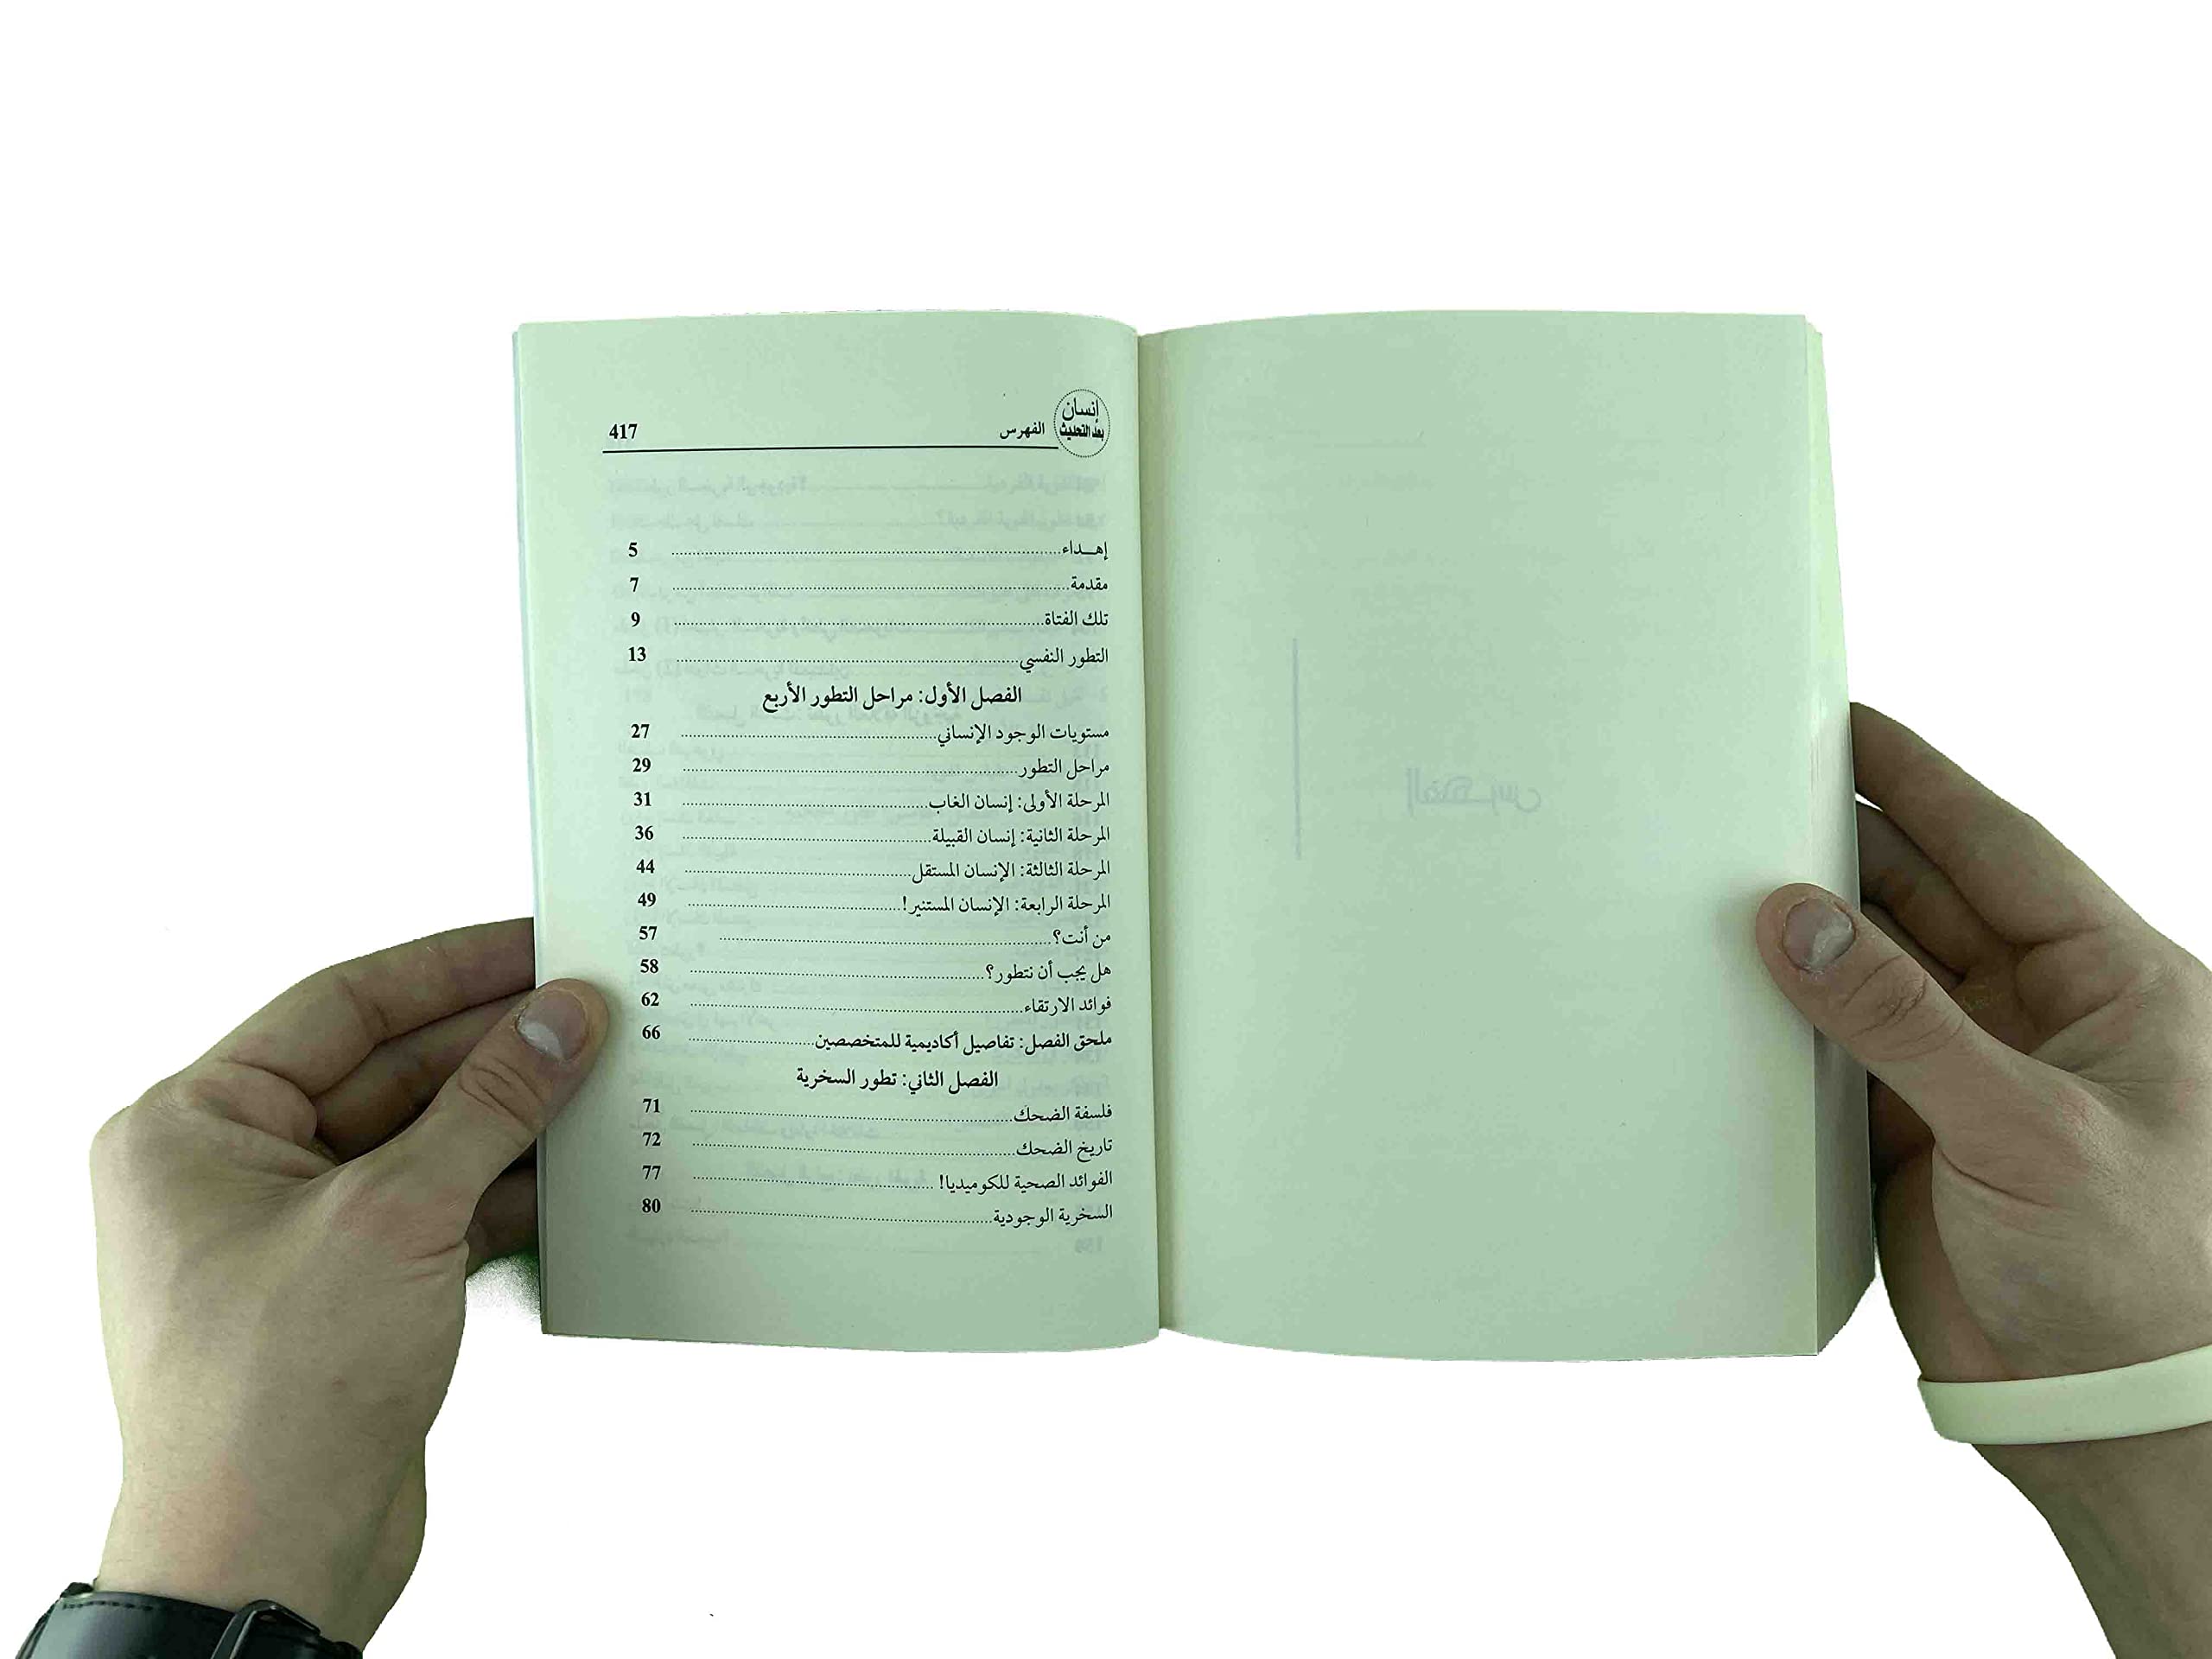 إنسان
بعد التحديث
الفهرس 417
إهـــداء 5
مقدمة 7
تلك الفتاة 9
التطور النفسي 13
الفصل الأول: مراحل التطور الأربع
مستويات الوجود الإنساني 27
مراحل التطور 29
المرحلة الأولى: إنسان الغاب 31
المرحلة الثانية: إنسان القبيلة 36
المرحلة الثالثة: الإنسان المستقل 44
المرحلة الرابعة: الإنسان المستنير! 49
من أنت؟ 57
هل يجب أن نتطور؟ 58
فوائد الارتقاء 62
ملحق الفصل: تفاصيل أكاديمية للمتخصصين 66
الفصل الثاني: تطور السخرية
فلسفة الضحك 71
تاريخ الضحك 72
الفوائد الصحية للكوميديا! 77
السخرية الوجودية 80